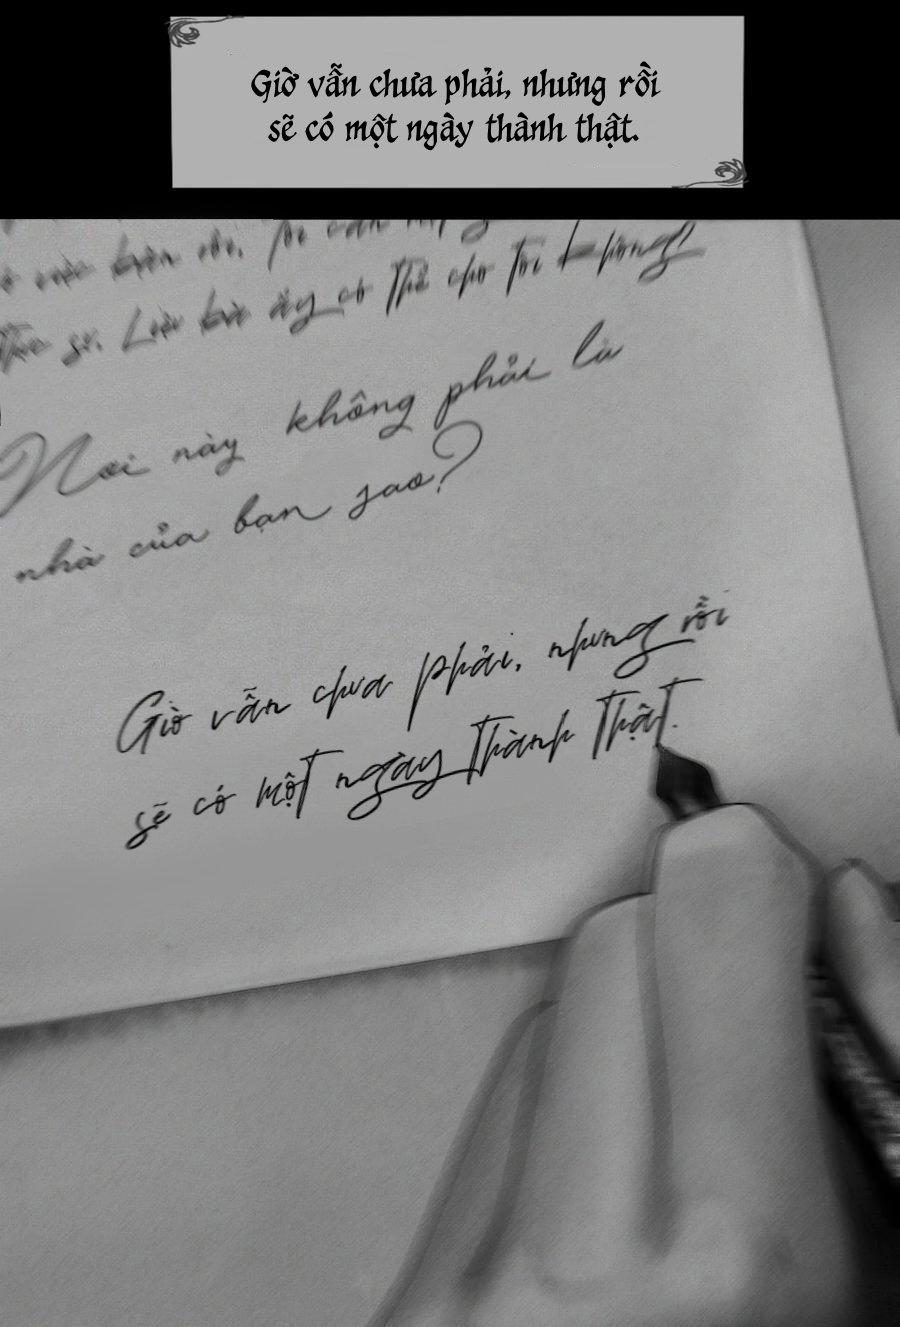 Giờ vẫn chưa phải, nhưng rồi
sẽ có một ngày thành thật.
thực sự. Liệu bà ấy có thể cho tôi không?
Nơi này không phải là
nhà của bạn sao?
Giờ vẫn chưa phải, nhưng rồi
sẽ có một ngày thành thật.